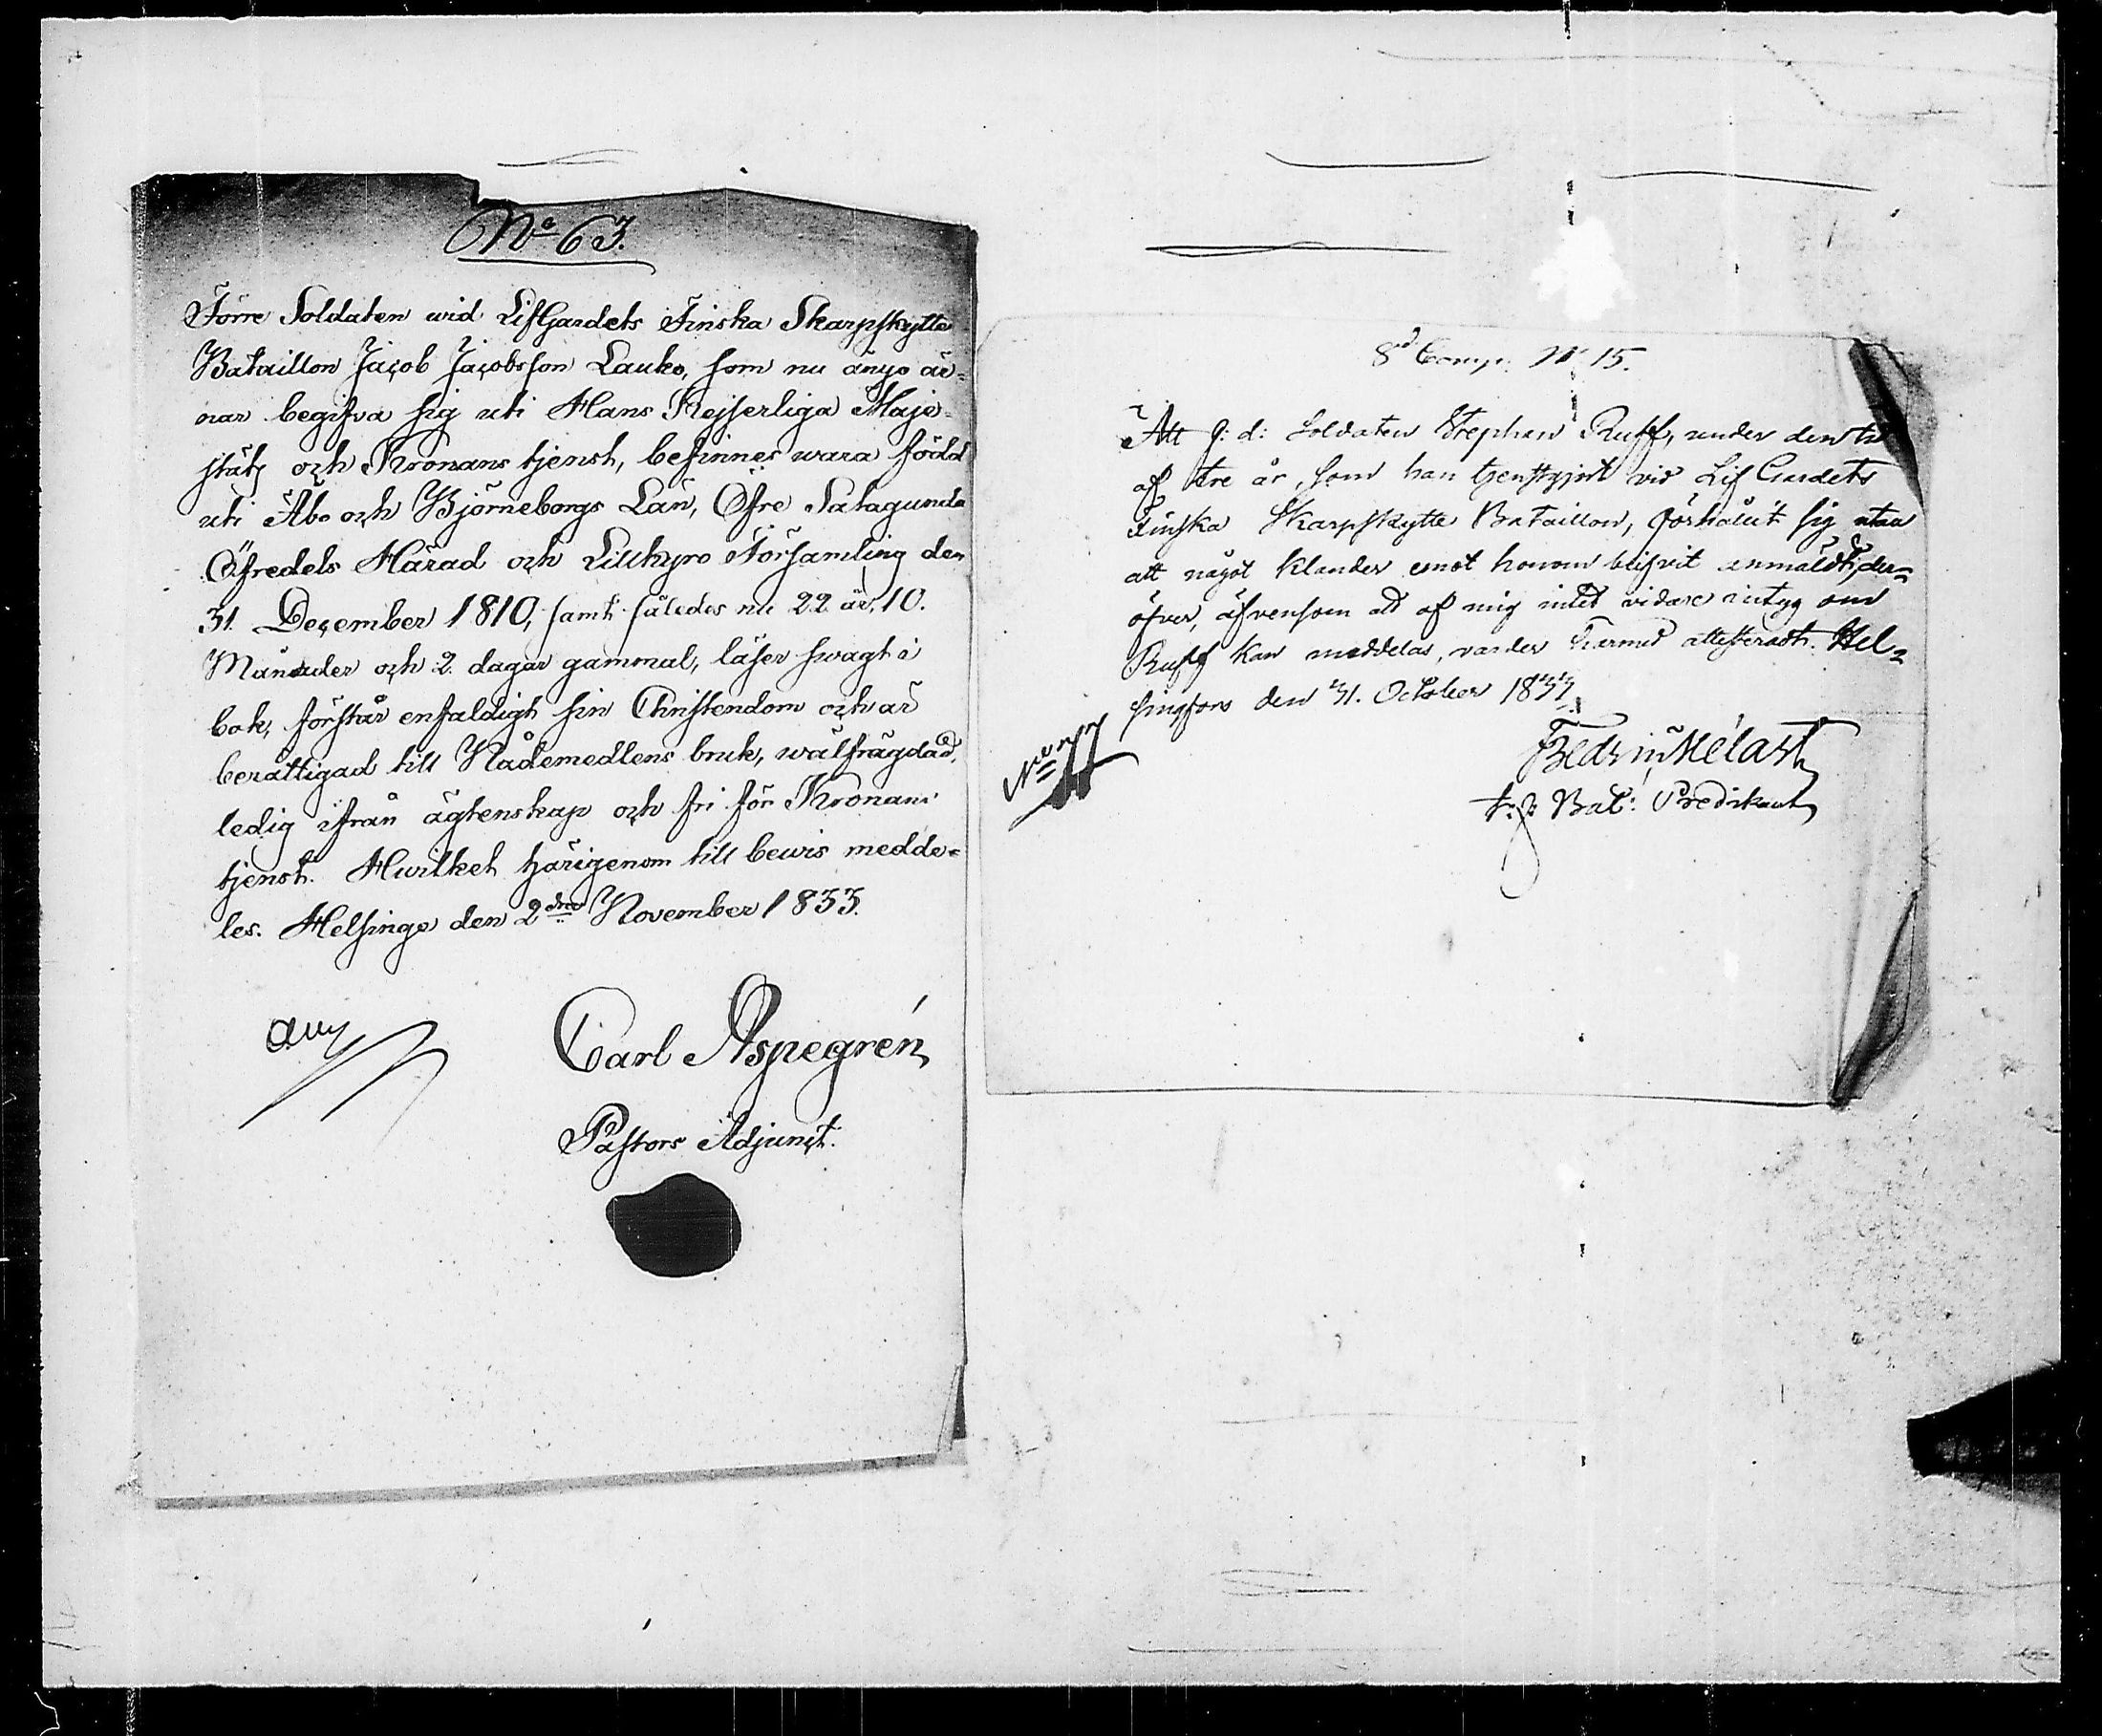 No 63.
Förre Soldaten wid LifGardets Finska Skarpskytte
Bataillon Jacob Jacobsson Lauko, som nu ånyo är-
nar begifva sig uti Hans Kejserliga Maje-
stäts och Kronans tjenst, befinnes wara född
uti Åbo och Björneborgs Län, Öfre Satagunda
Öfredels Härad och Lillkyro Församling den
31. December 1810, samt således nu 22 år, 10.
Månader och 2. dagar gammal, läser swagt i
bok, förstår enfaldigt sin Christendom och är
berättigad till Nådemedlens bruk, wälfrägdad,
ledig ifrån ägtenskap och fri för Kronans
tjenst. Hwilket härigenom till bewis medde-
les. Helsinge den 2dra November 1833.
Carl Aspegrén
Pastors Adjunct.
8d Comp. No 15.
Att f: d: Soldaten Stephan Ruff, under den tid
af tre år, som han tjenstgjort vid Lif Gardets
Finska Skarpskytte Bataillon, förhållit sig utan
att något klander emot honom blifvit anmäldt, der-
öfver, äfvensom att af mig intet vidare intyg om
Ruff kan meddelas, varder härmed attesteradt. Hel-
singfors den 31. October 1833.
t: f: Bat: Predikant